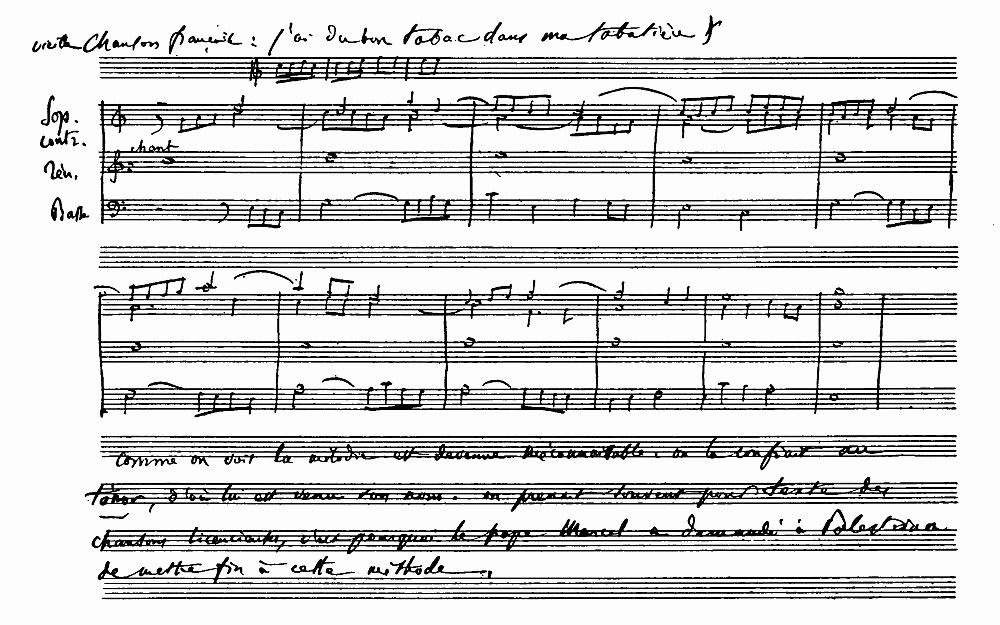 vieille Chanson française : j'ai du bon tabac dans ma tabatière
Sop.
contr.
chant
Tén.
Basse
comme on voit la mélodie est devenue méconnaissable. on la confiait au
ténor, d'où lui est venu son nom. on prenait souvent pour texte des
chansons licencieuses, c'est pourquoi le pape Marcel a demandé à Palestrina
de mettre fin à cette méthode.